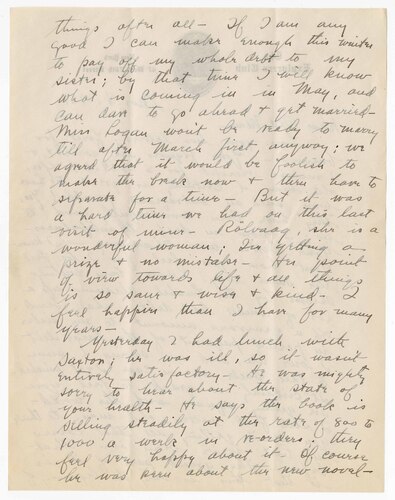 things after all — If I am any
good I can make enough this winter
to pay off my whole debt to my
sister; by that time I will know
what is coming in in May, and
can dare to go ahead & get married —
Miss Logan won't be ready to marry
till after March first anyway: we
agreed that it would be foolish to
make the break now & then have to
separate for a time — But it was
a hard time we had on this last
visit of mine — Rölvaag, she is a
wonderful woman; I'm getting a
prize & no mistake — Her point
of view towards life & all things
is so sane & wise & kind — I
feel happier than I have for many
years —
Yesterday I had lunch with
Saxton; he was ill, so it wasn't
entirely satisfactory — He was mighty
sorry to hear about the state of
your health — He says the book is
selling steadily at the rate of 800 to
1000 a week in re-orders; they
feel very happy about it — Of course
he was keen about the new novel —